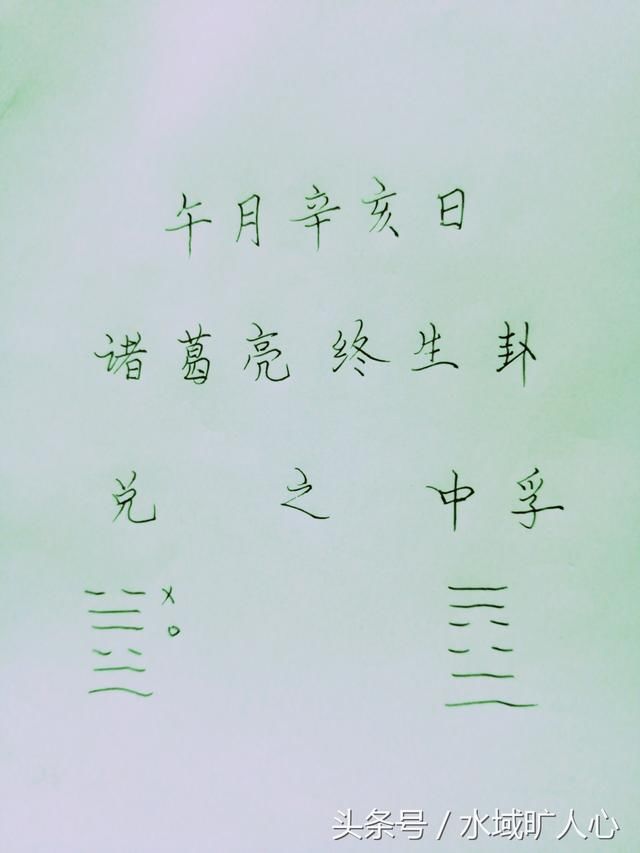 午月辛亥日
诸葛亮终生卦
兑 之 中孚
x
o
头条号 / 水域旷人心